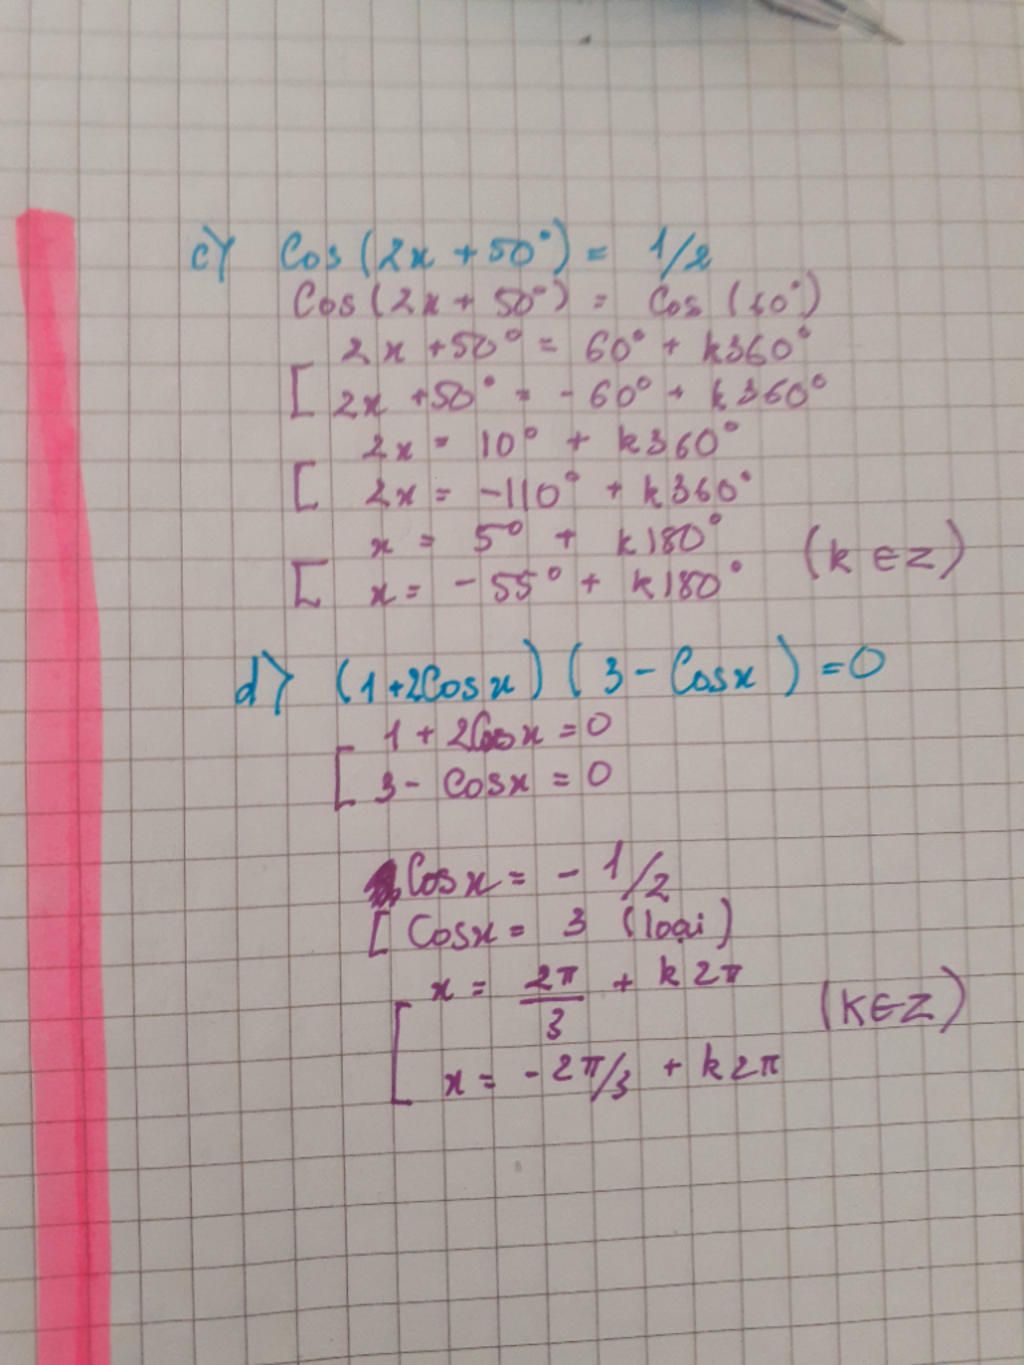 c) Cos(2x + 50°) = 1/2
Cos(2x + 50°) = Cos (60°)
2x + 50° = 60° + k360°
[ 2x + 50° = - 60° + k360°
2x = 10° + k360°
[ 2x = -110° + k360°
x = 5° + k180°
[ x = - 55° + k180° (k ∈ Z)
d) (1+2Cosx) (3 - Cosx) = 0
1 + 2Cosx = 0
[ 3 - Cosx = 0
Cosx = - 1/2
[ Cosx = 3 (loại)
x = 2π/3 + k2π
[ x = - 2π/3 + k2π (k∈Z)